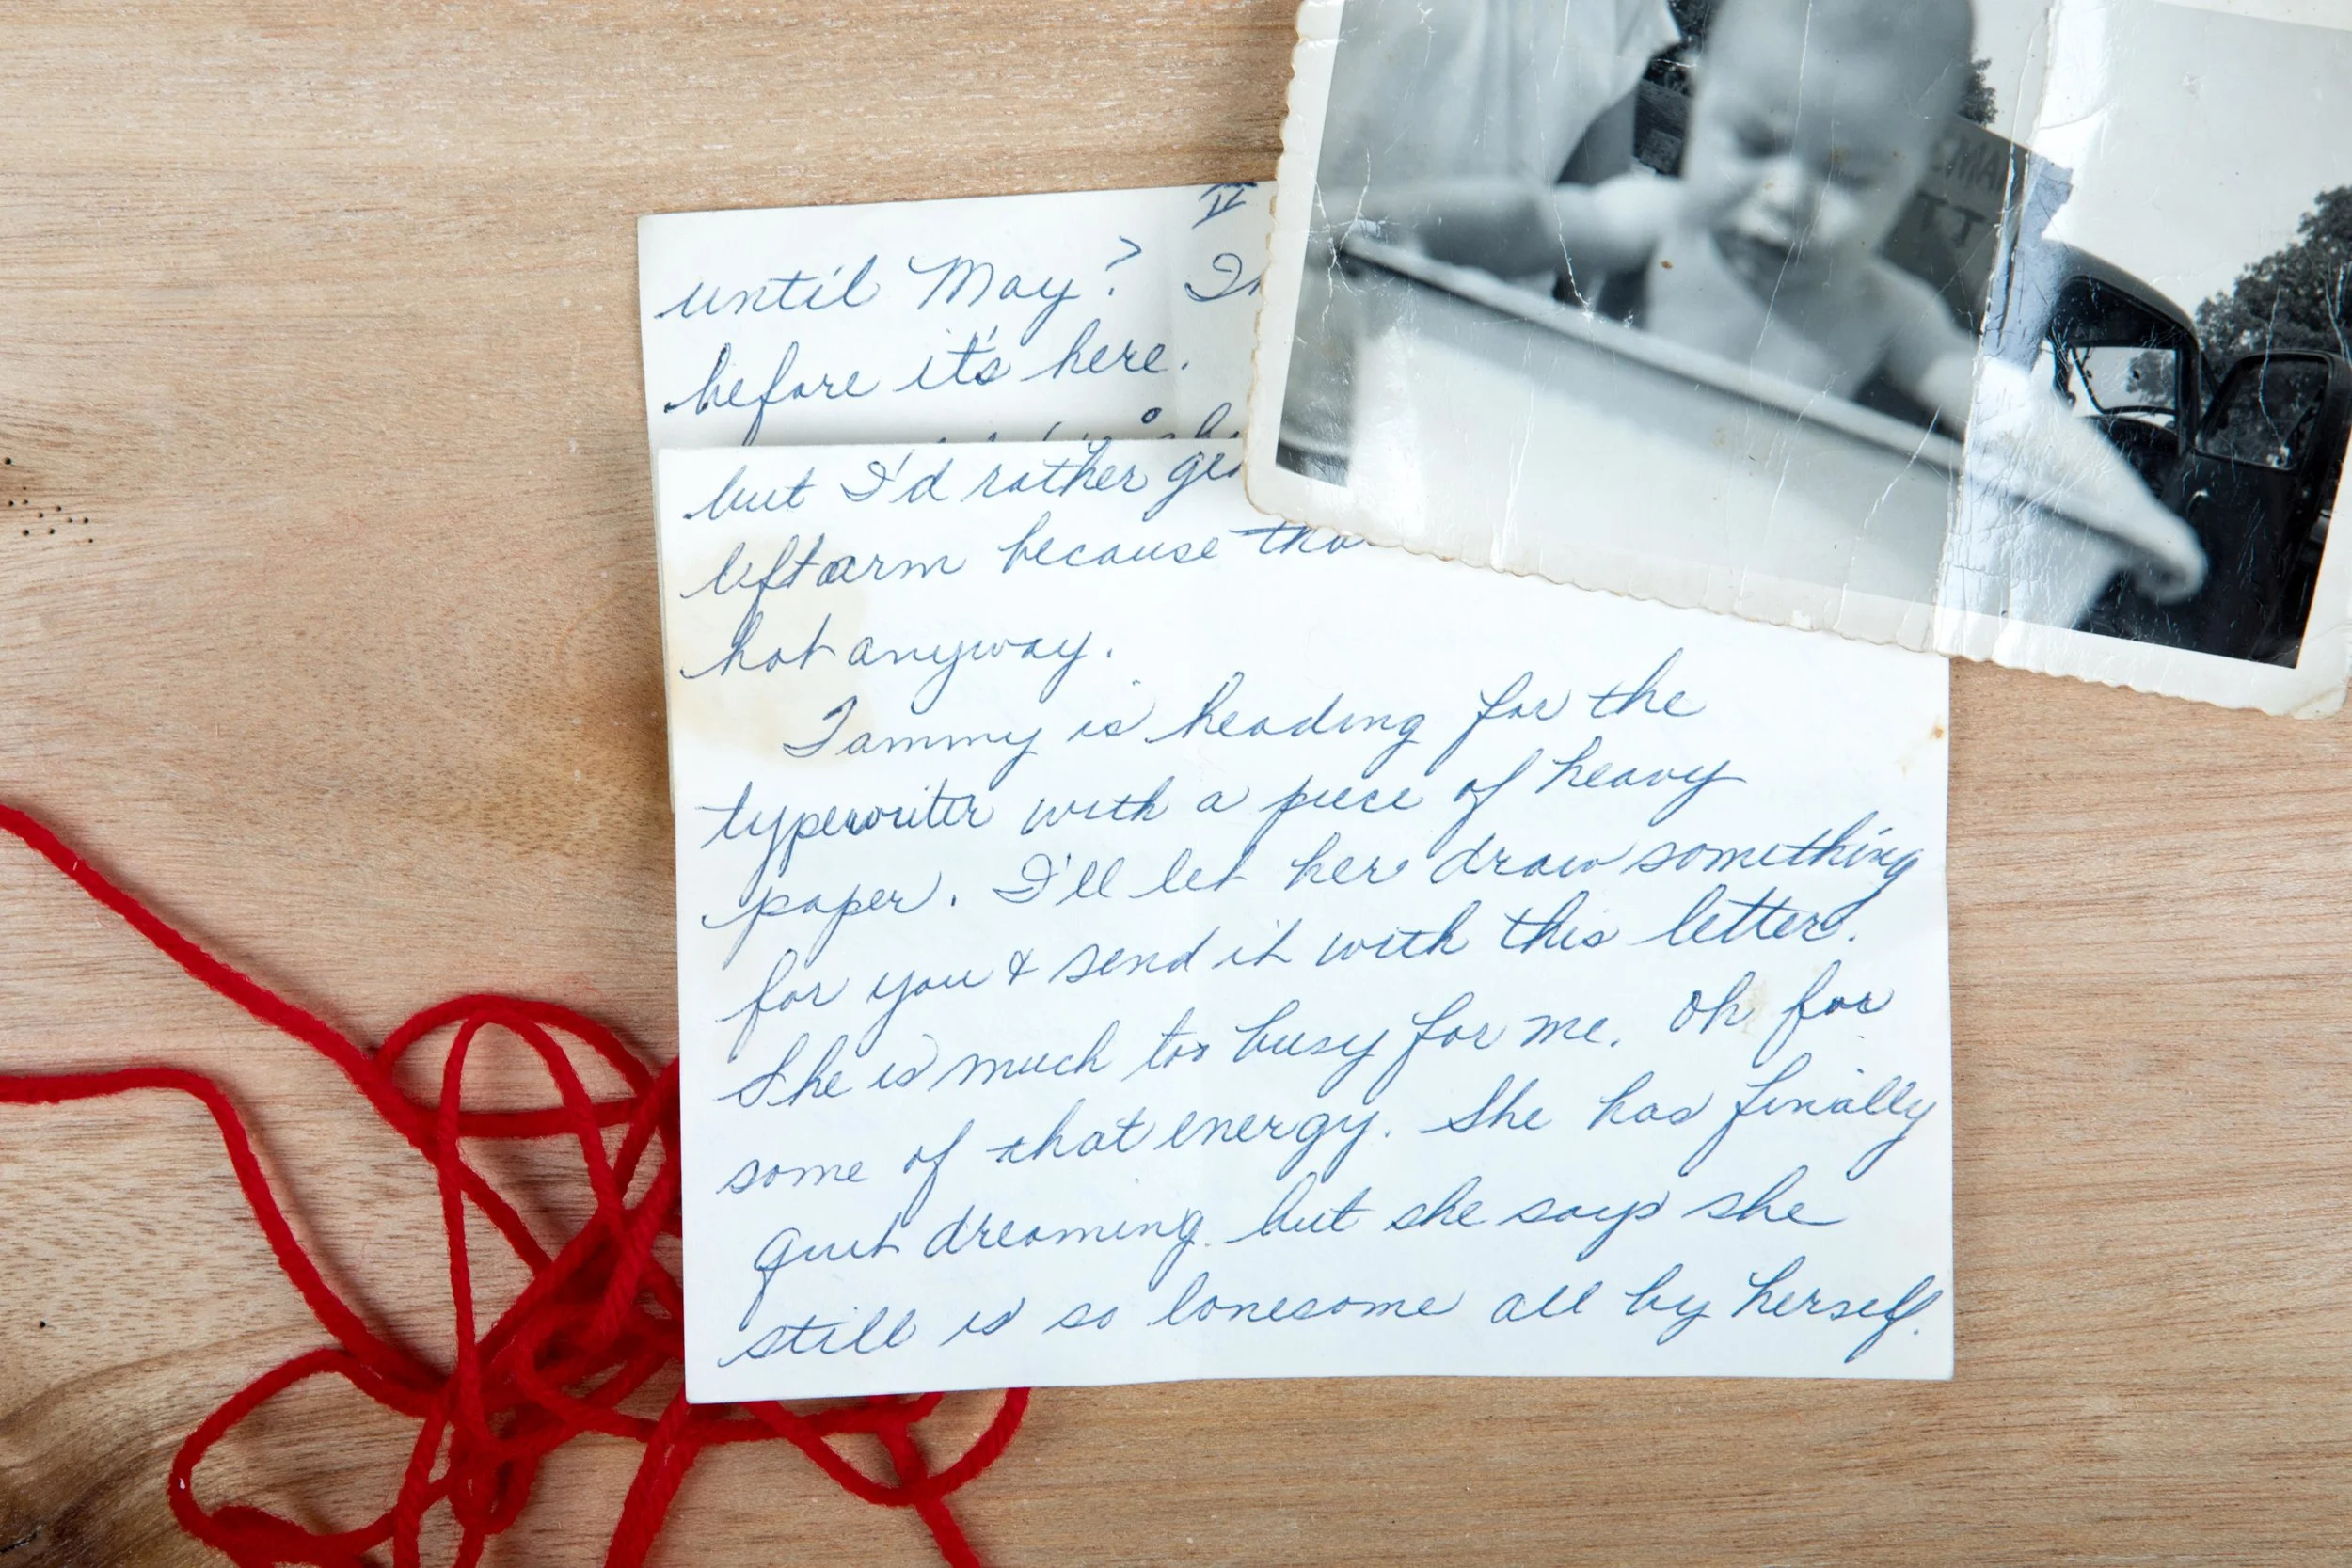 IV
until May?
before it's here.
but I'd rather
left arm because
hot anyway.
Tammy is heading for the
typewriter with a piece of heavy
paper. I'll let her draw something
for you & send it with this letter.
She is much too busy for me. Oh for
some of that energy. She has finally
quit dreaming but she says she
still is so lonesome all by herself.